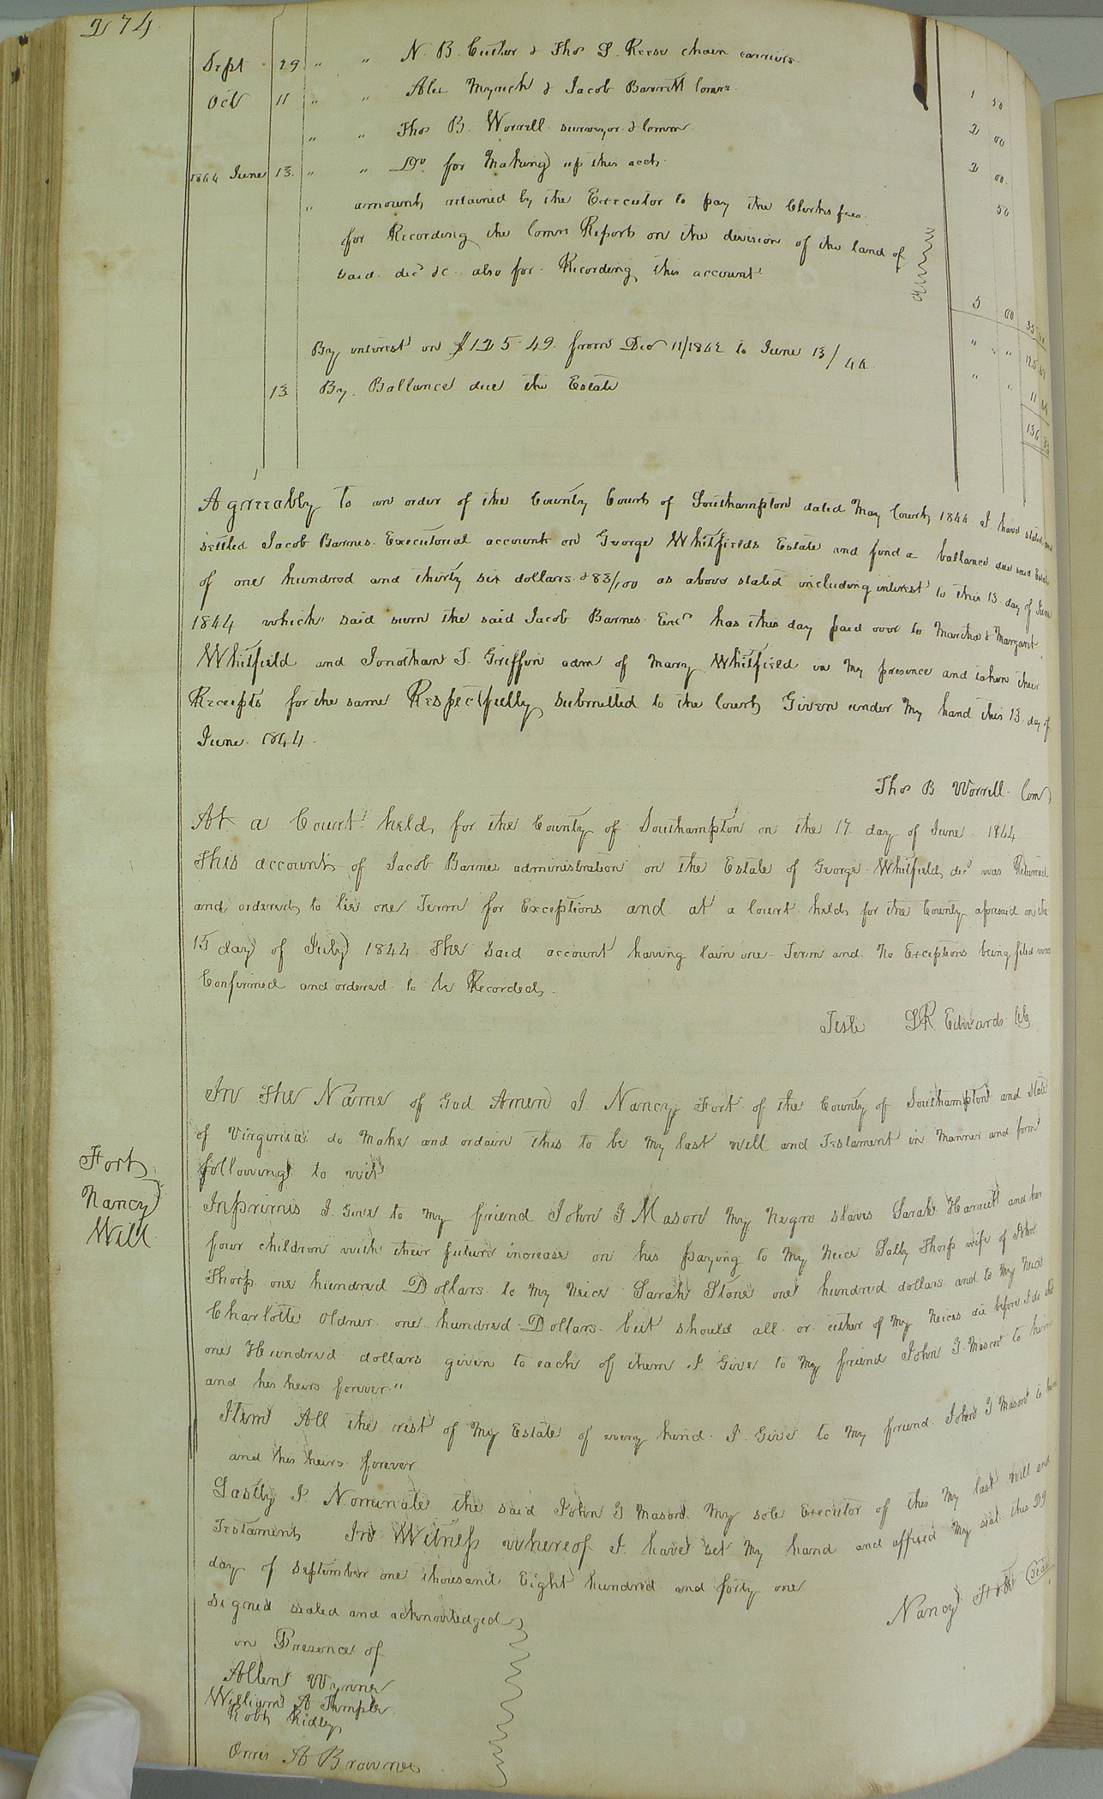 274
Sept 29 " " N. B. Cutler & Thos S. Reese chain carriers 1 50
Oct 11 " " Alex Myrick & Jacob Barrett Comrs 2 00
" " Thos B. Worrell surveyor & Comm 2 00
1844 June 13 " " Do for Making up this acct 50
" amount retained by the Executor to pay the Clerks fees
for Recording the Comrs Report on the division of the land of
said decd &c also for Recording this account 5 00
By interest on $125.49 from Dec 11/1842 to June 13/44
13 By Ballance due the Estate
Agreeably to an order of the County Court of Southampton dated May Court 1844 I have stated and
settled Jacob Barnes Executorial account on George Whitfields Estate and find a ballance due said Estate
of one hundred and thirty six dollars & 83/100 as above stated including interest to this 13 day of June
1844 which said sum the said Jacob Barnes Exr has this day paid over to Martha & Margaret
Whitfield and Jonathan J. Griffin adm of Marry Whitfield in My presence and taken their
Receipts for the same Respectfully Submitted to the Court Given under My hand this 13 day of
June 1844.
Thos B Worrell Com
At a Court held for the County of Southampton on the 17 day of June 1844
This account of Jacob Barnes administration on the Estate of George Whitfield decd was Returned
and ordered to lie one Term for Exceptions and at a Court held for the County aforesaid on the
15 day of July 1844 The said account having lain one Term and No Exceptions being filed was
Confirmed and ordered to be Recorded.
Teste LR Edwards Clk
Fort
Nancy
Will
In The Name of God Amen I Nancy Fort of the County of Southampton and State
of Virginia do Make and ordain this to be My last will and Testament in Manner and form
following to wit
Inprimis I Give to My friend John G Mason My Negro slaves Sarah Harriett and her
four children with their future increase on his paying to My Neice Sally Thorp wife of John
Thorp one hundred Dollars to My Neice Sarah Stone one hundred dollars and to My Neice
Charlotte Oldner one hundred Dollars but should all or either of My Neices die before I do the
one Hundred dollars given to each of them I Give to My friend John G. Mason to him
and his heirs forever"
Item All the rest of My Estate of every kind I Give to My friend John G Mason to him
and his heirs forever
Lastly I Nominate the said John G Mason My sole Executor of this My last will and
Testament In Witness whereof I have set My hand and affixed My seal this 29
day of September one thousand Eight hundred and forty one
Nancy Fort Seal
Signed sealed and acknowledged
in Presence of
Allen Wynne
William A Temple
Robt Ridley
Orris A Browne